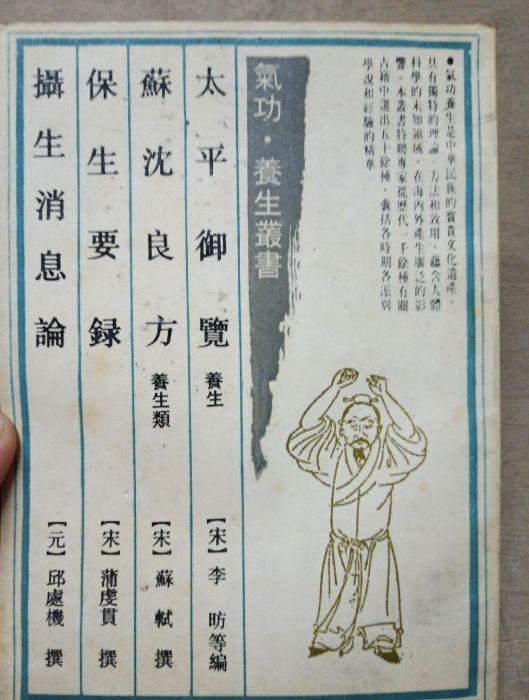 ●氣功養生是中華民族的寶貴文化遺產，
具有獨特的理論、方法和效用，蘊含人體
科學的未知領域，在海內外產生廣泛的影
響。本叢書特聘專家從歷代一千餘種有關
古籍中選出五十餘種，囊括各時期各派別
學說和經驗的精華。
氣功·養生叢書
太平御覽 養生 【宋】李昉等編
蘇沈良方 養生類 【宋】蘇軾 撰
保生要録 【宋】蒲虔貫 撰
攝生消息論 【元】邱處機 撰